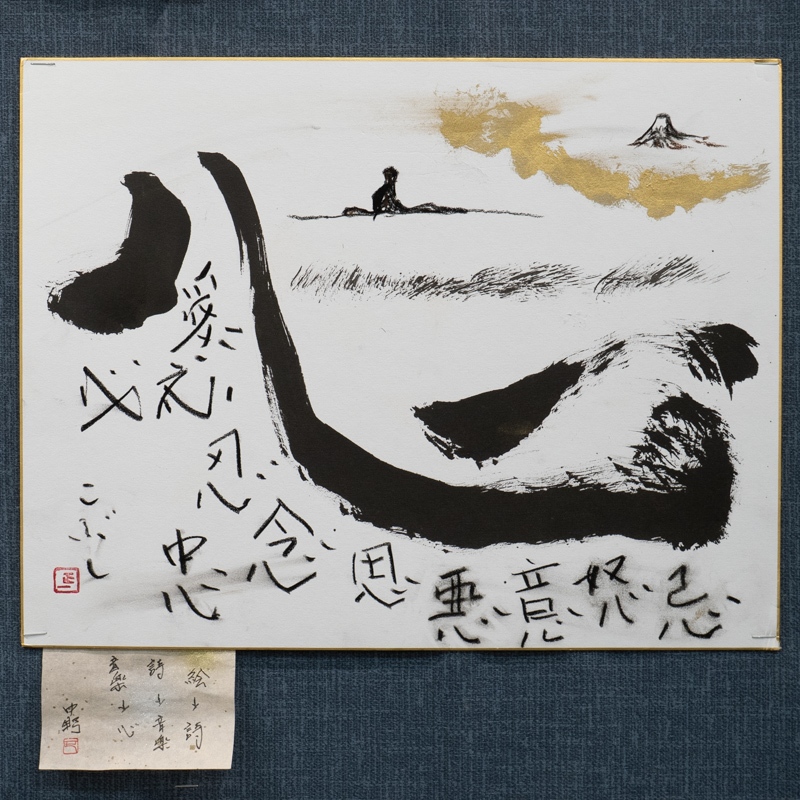 心
愛
必
忍
忠
念
恩
悪
意
怒
忌
こぶし
絵と詩
詩と音楽
音楽と心